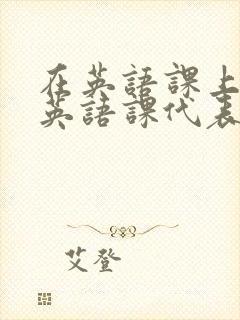 在英語課上
英語課代表
艾登